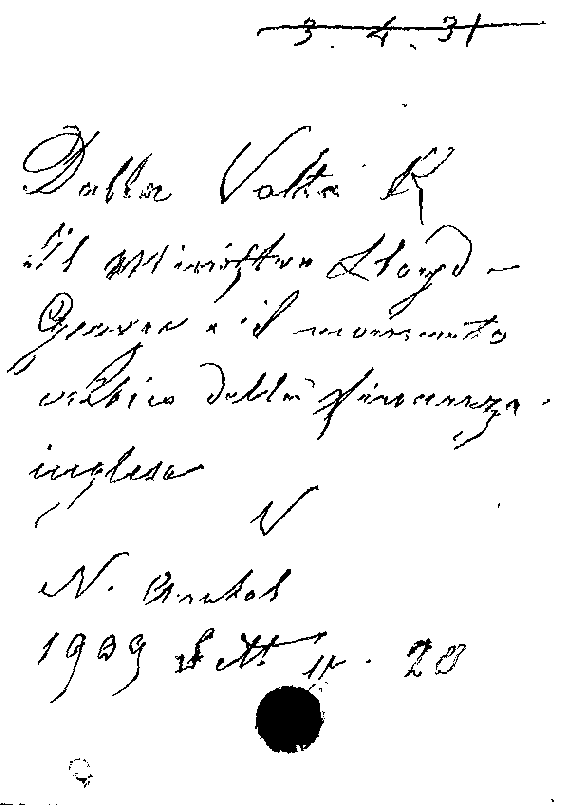 3. 4. 31
Dalla Volta R
Il Ministro Lloyd-
George e il momento
critico della finanza
inglese
V
N. Antol
1909 Sett 11. 28